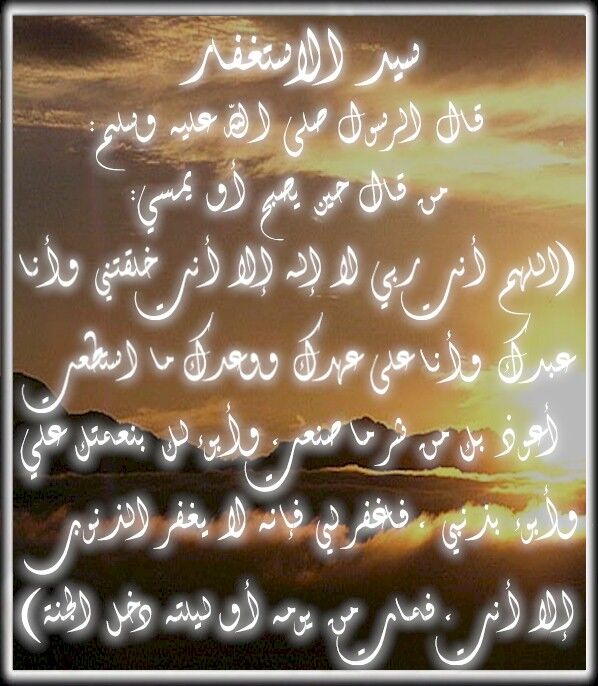 سيد الاستغفار
قال الرسول صلى الله عليه وسلم:
من قال حين يصبح أو يمسي:
(اللهم أنت ربي لا إله إلا أنت خلقتني وأنا
عبدك وأنا على عهدك ووعدك ما استطعت
أعوذ بك من شر ما صنعت، وأبوء لك بنعمتك علي
وأبوء بذنبي ، فاغفر لي فإنه لا يغفر الذنوب
إلا أنت ، فمات من يومه أو ليلته دخل الجنة)